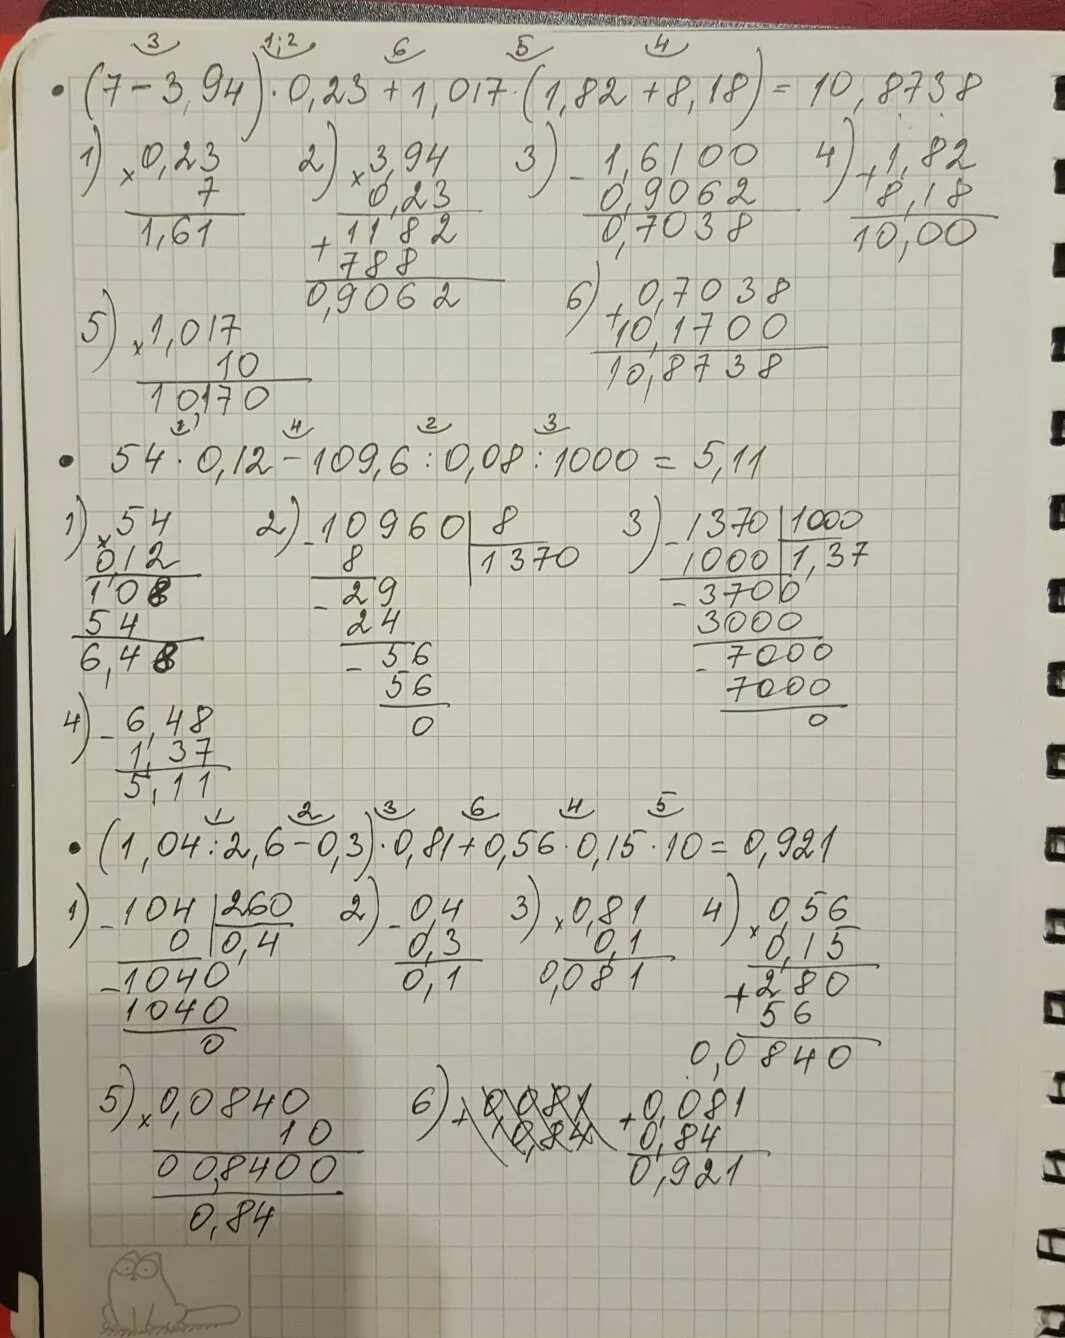 3 1;2 6 5 4
• (7 − 3,94) · 0,23 + 1,017 · (1,82 + 8,18) = 10,8738
1) × 0,23 2) × 3,94 3) − 1,6100 4) + 1,82
7 0,23 0,9062 8,18
1,61 + 1182 0,7038 10,00
788
0,9062
5) × 1,017 6) + 0,7038
10 10,1700
10,170 10,8738
1 4 2 3
• 54 · 0,12 − 109,6 : 0,08 : 1000 = 5,11
1) × 54 2) − 10960 | 8 3) − 1370 | 1000
0,12 8 | 1370 1000 | 1,37
108 − 29 − 3700
54 24 3000
6,48 − 56 − 7000
56 7000
0 0
4) − 6,48
1,37
5,11
1 2 3 6 4 5
• (1,04 : 2,6 − 0,3) · 0,81 + 0,56 · 0,15 · 10 = 0,921
1) − 104 | 260 2) − 0,4 3) × 0,81 4) × 0,56
0 | 0,4 0,3 0,1 0,15
− 1040 0,1 0,081 + 280
1040 56
0 0,0840
5) × 0,0840 6) + 0,081 + 0,081
10 0,84 0,84
00,8400 0,921
0,84